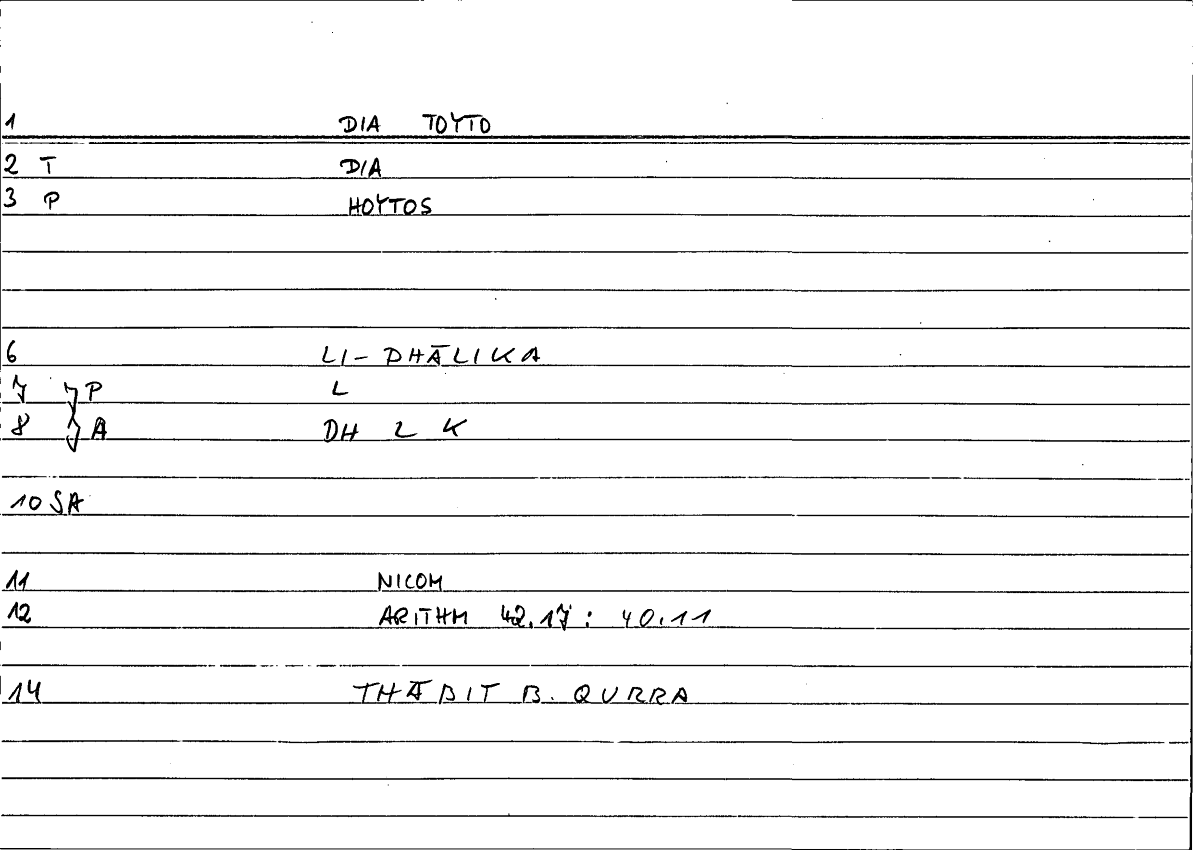 1 DIA TOYTO
2 T DIA
3 P HOYTOS
6 LI-DHĀLIKA
7 7P L
8 7A DH L K
10 SA
11 NICOM
12 ARITHM 42.17: 40.11
14 THĀBIT B. QURRA